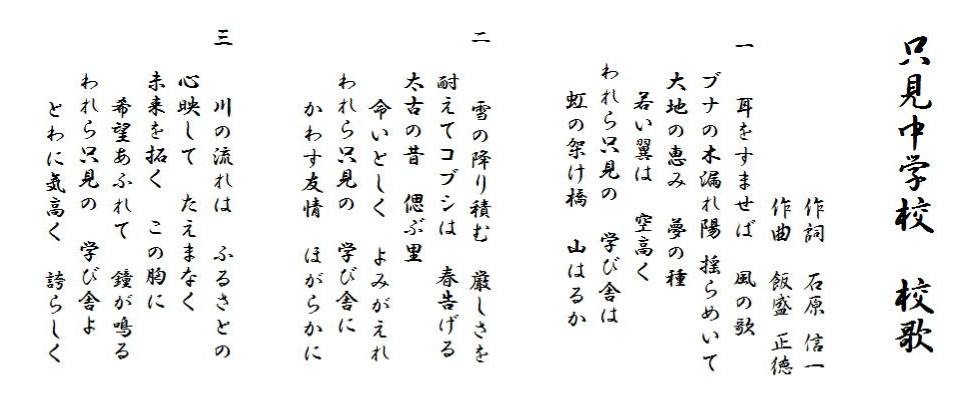 只見中学校　校歌
作詞　石原　信一
作曲　飯盛　正徳
一
耳をすませば　風の歌
ブナの木漏れ陽　揺らめいて
大地の恵み　夢の種
若い翼は　空高く
われら只見の　学び舎は
虹の架け橋　山はるか
二
雪の降り積む　厳しさを
耐えてコブシは　春告げる
太古の昔　偲ぶ里
命いとしく　よみがえれ
われら只見の　学び舎に
かわす友情　ほがらかに
三
川の流れは　ふるさとの
心映して　たえまなく
未来を拓く　この胸に
希望あふれて　鐘が鳴る
われら只見の　学び舎よ
とわに気高く　誇らしく